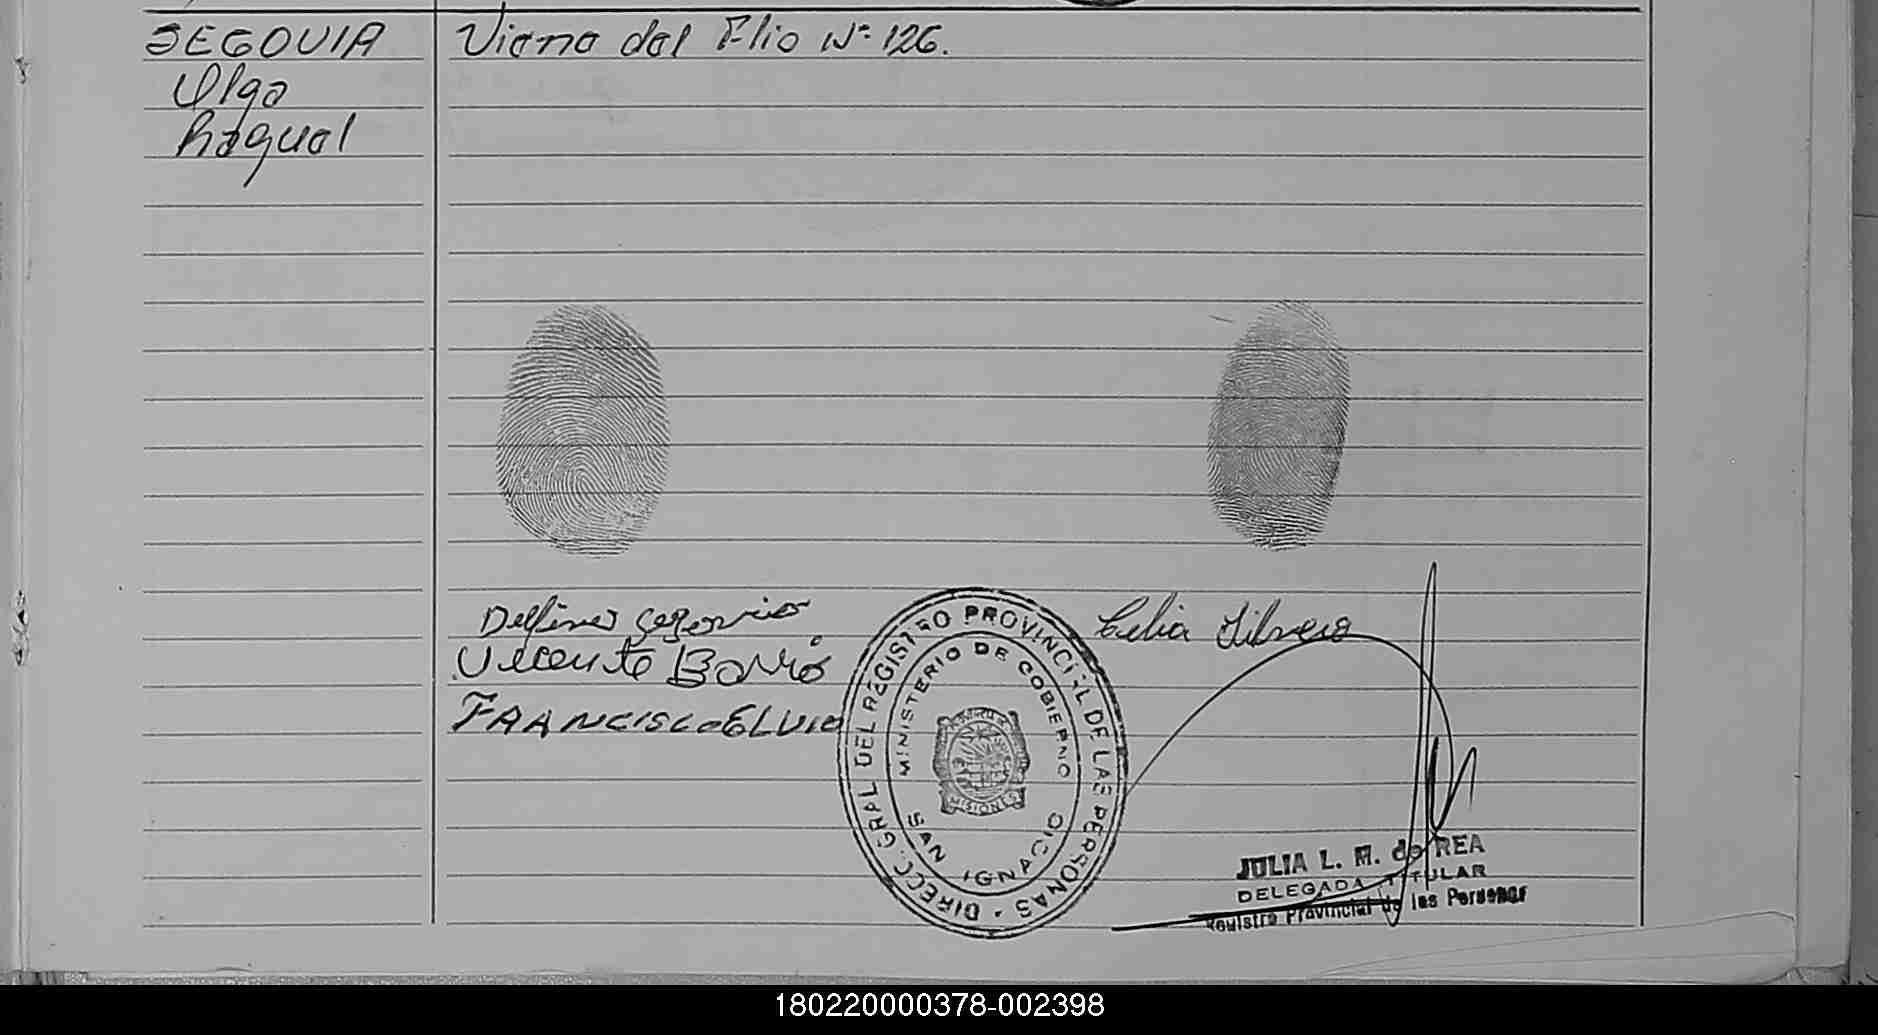 SEGOVIA
Olga
Raquel
Viene del Flio Nº 126.
Delfines Segovia
Celia Silvero
Vicente Barrió
FRANCISCO ELVIO
DIRECC. GRAL DEL REGISTRO PROVINCIAL DE LAS PERSONAS
MINISTERIO DE GOBIERNO
MISIONES
SAN IGNACIO
JULIA L. M. de REA
DELEGADA TITULAR
Registro Provincial de las Personas
180220000378-002398